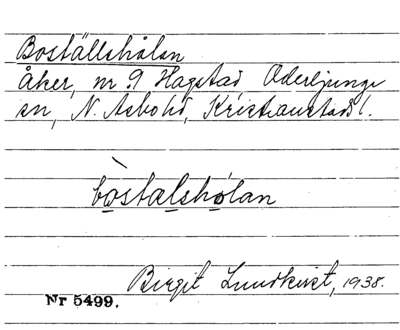 Boställshålan
åker, nr 9 Hagstad, Oderljunga
sn, N. Åsbo hd, Kristianstads l.
bo̠sta̠lsho̠lan
Birgit Lundkvist, 1938.
Nr 5499.